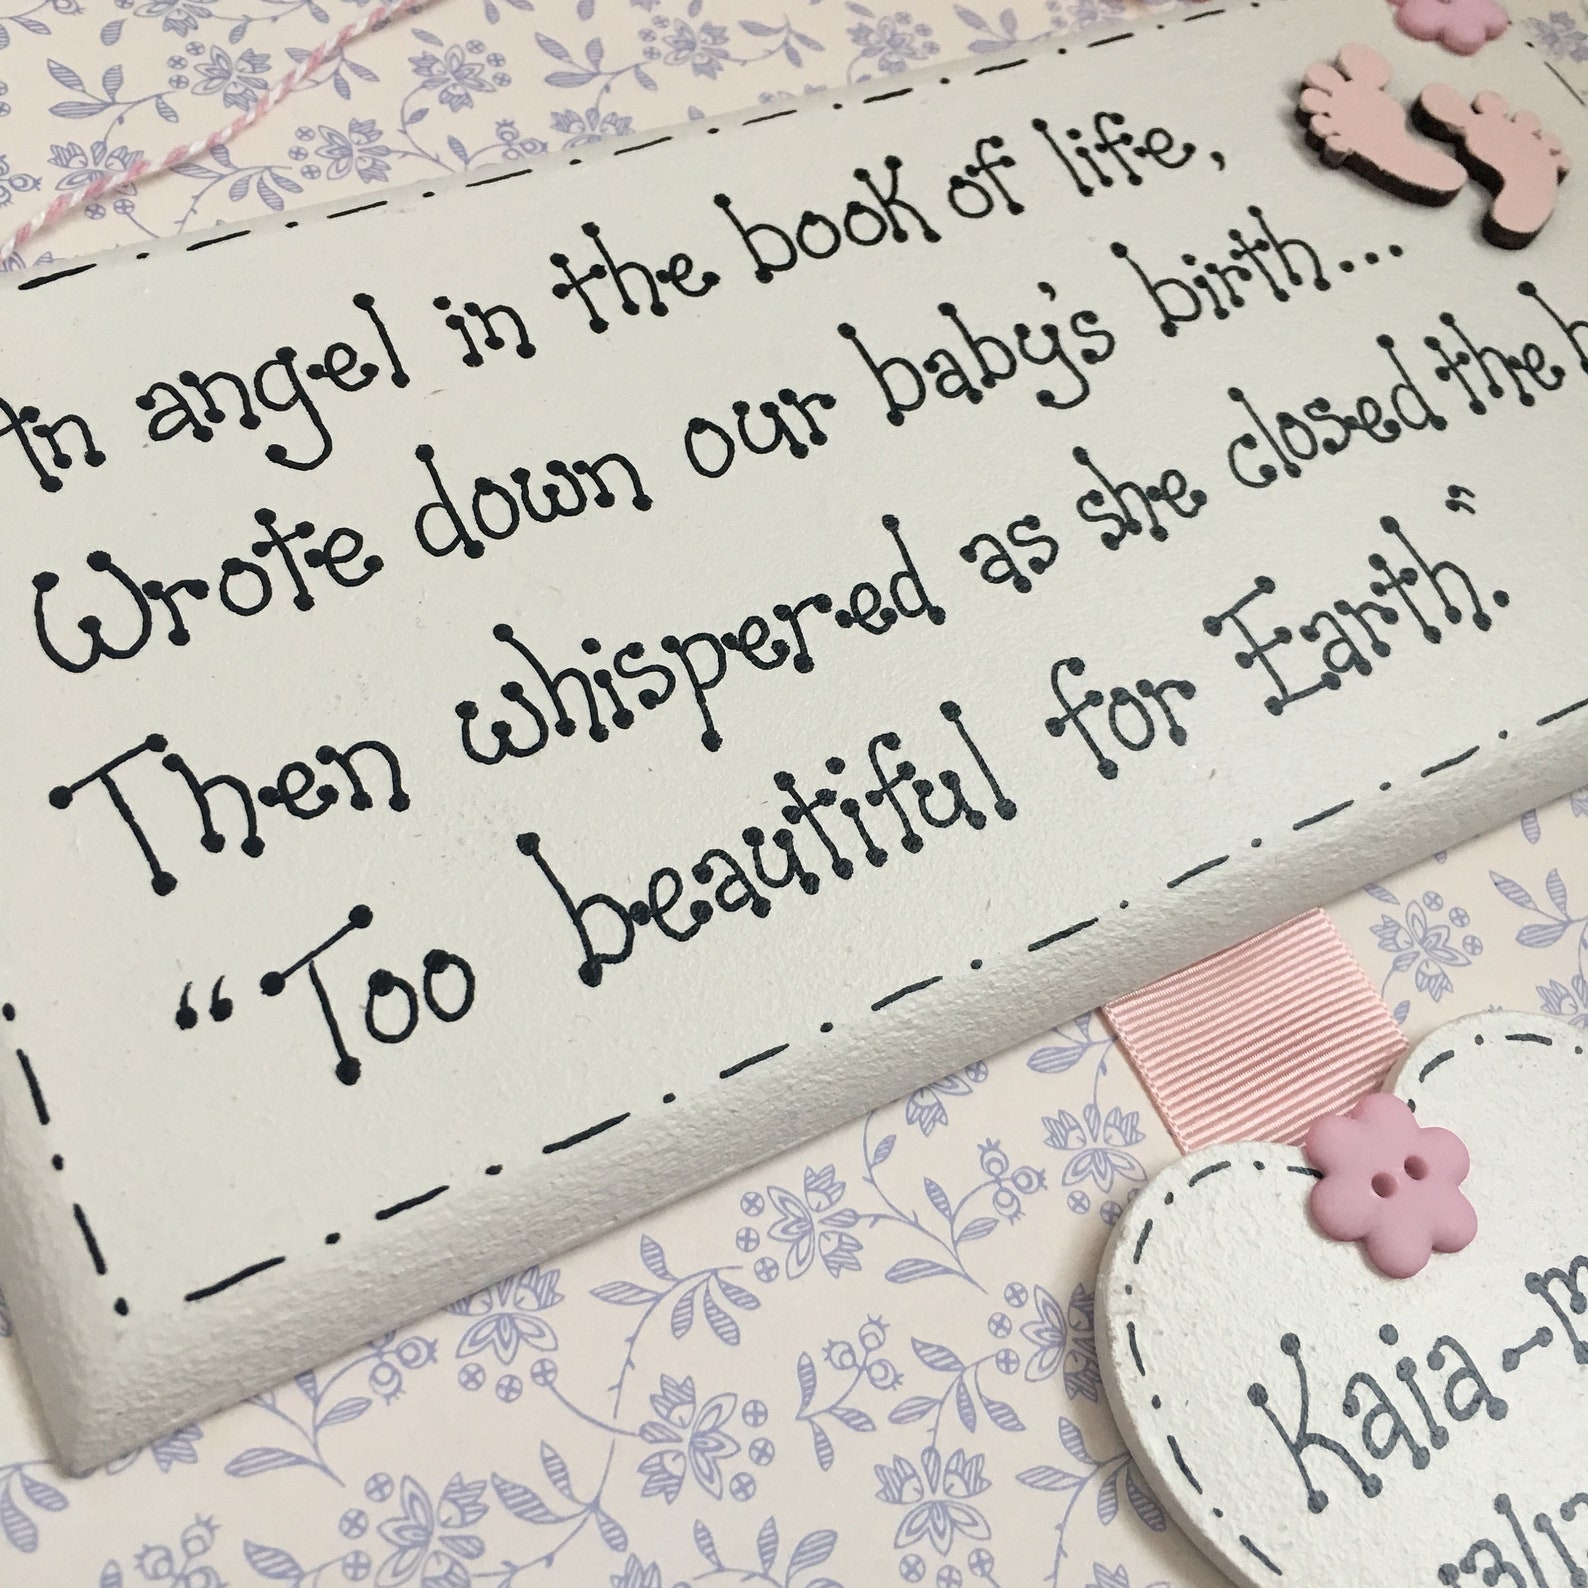 In angel in the book of life,
Wrote down our baby's birth...
Then whispered as she closed the b
"Too beautiful for Earth."
Kaia-m